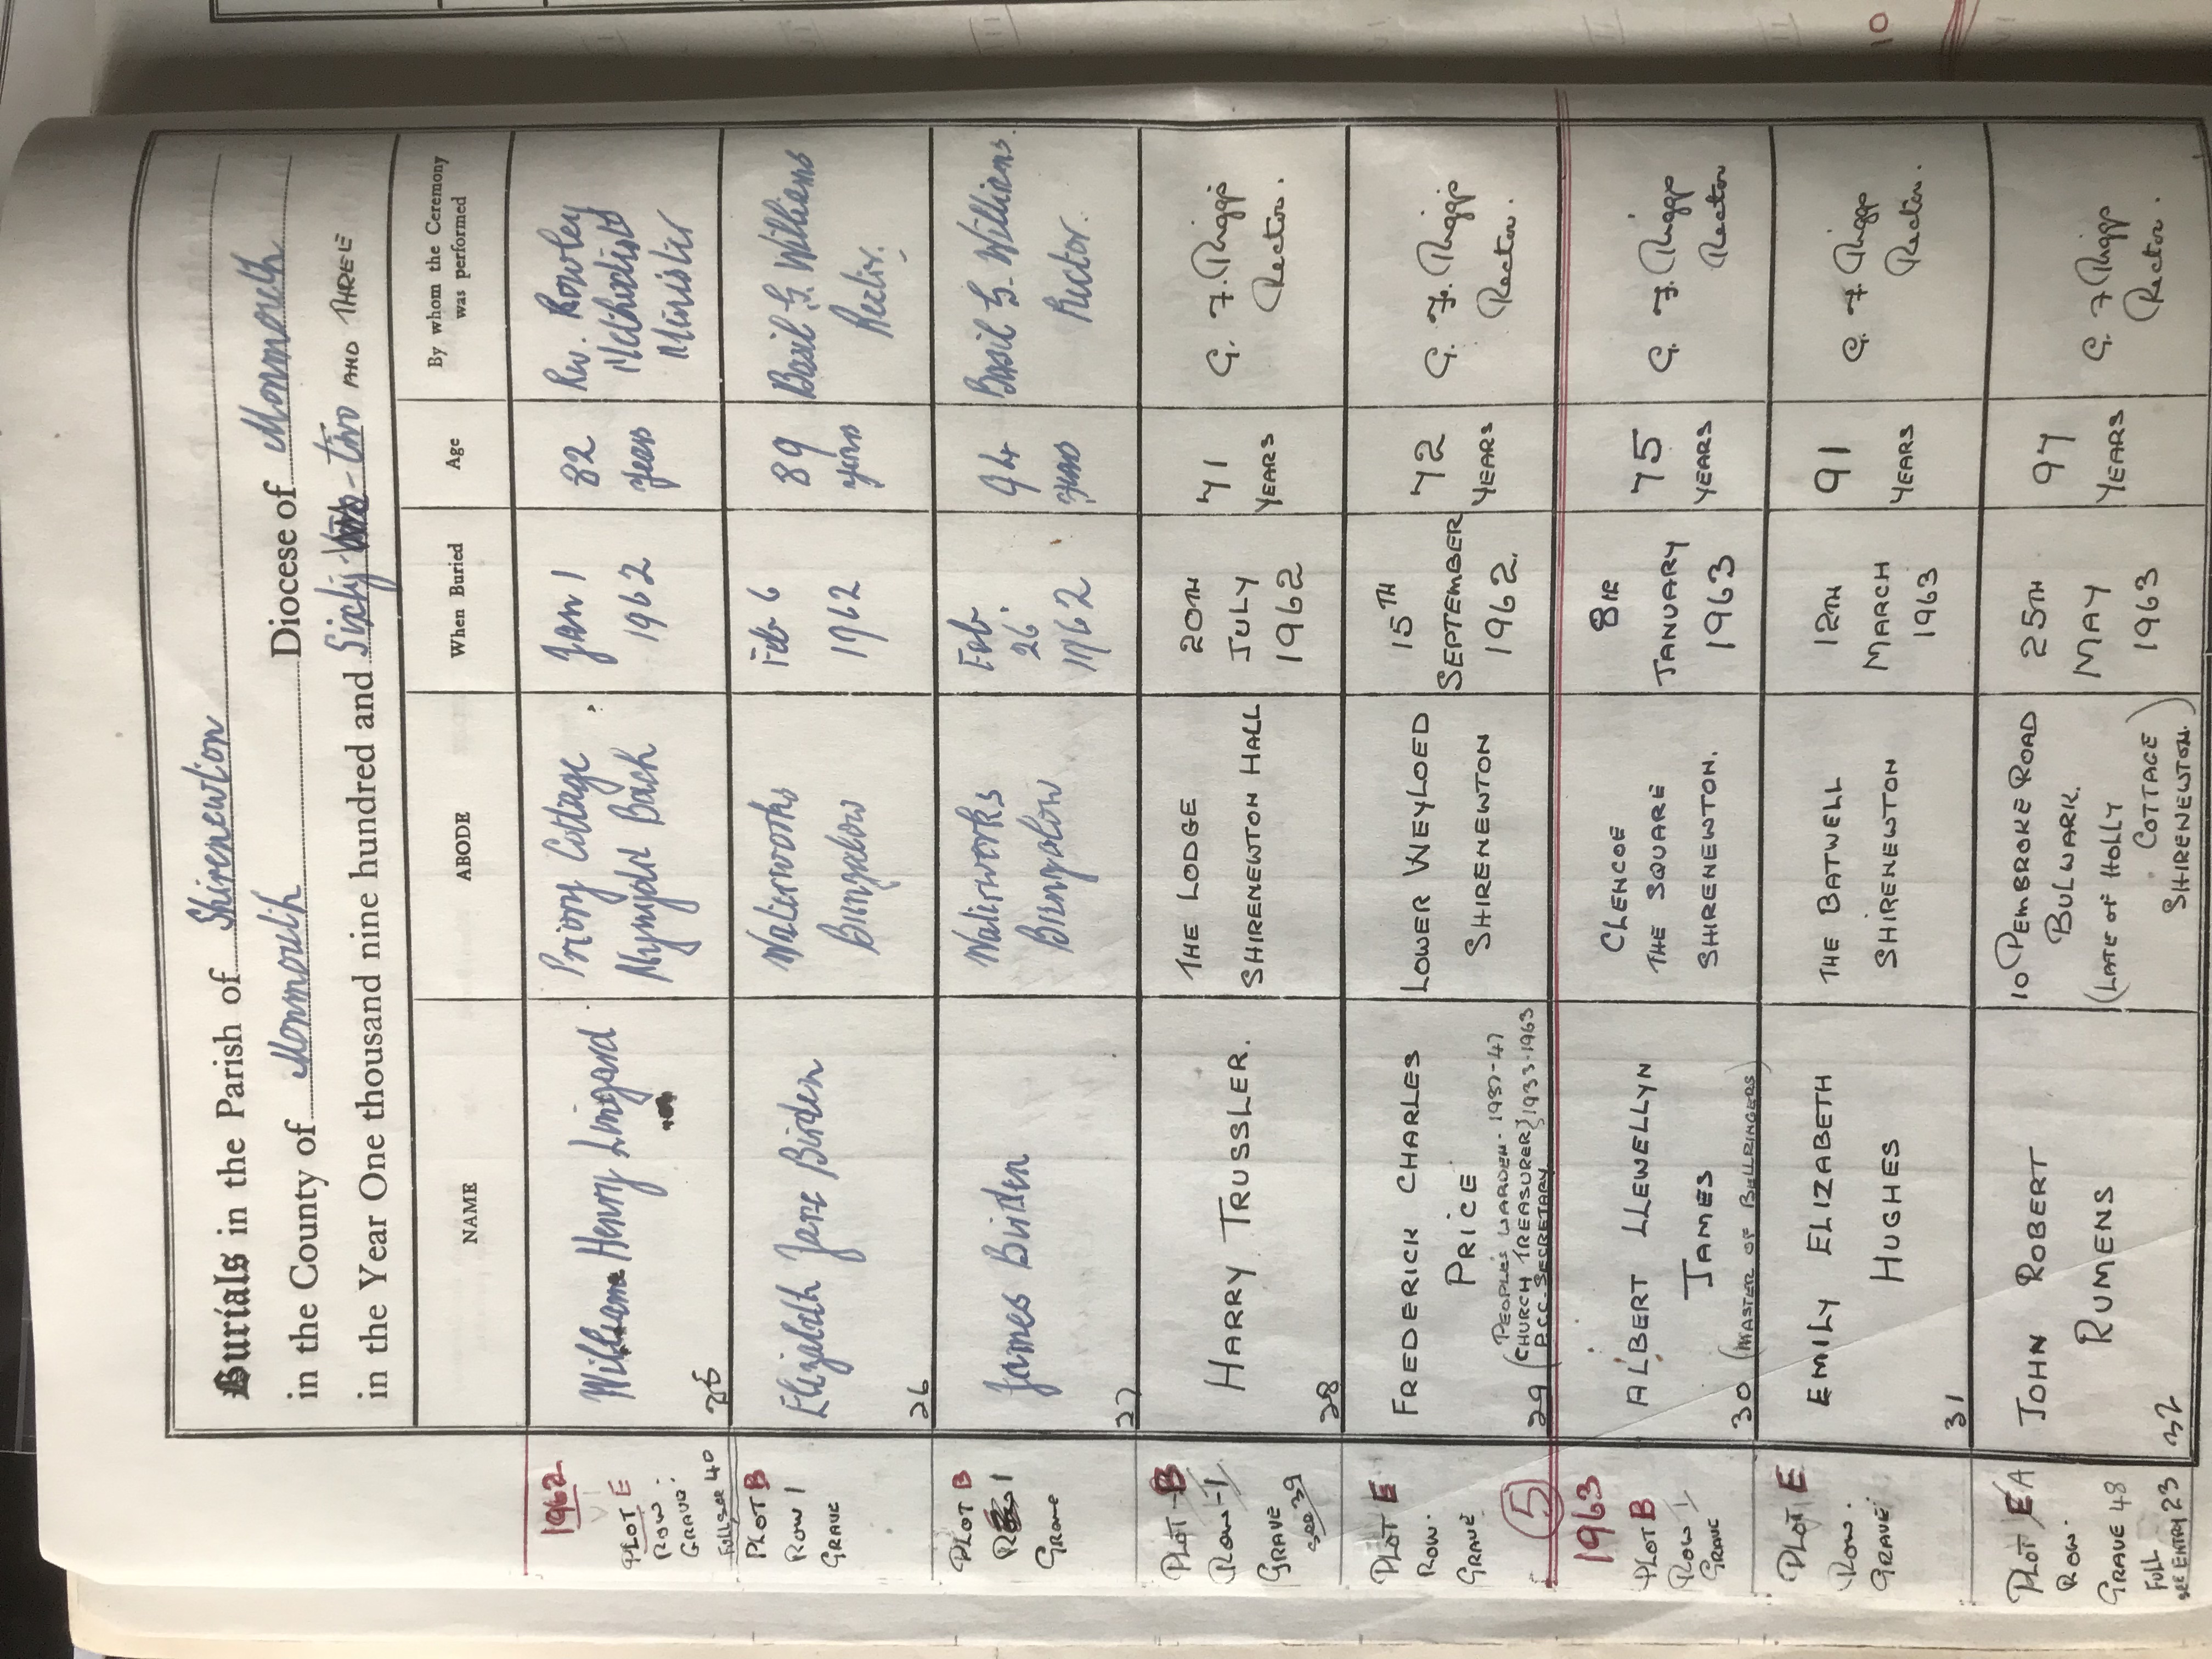 Burials in the Parish of Shirenewton
in the County of Monmouth Diocese of Monmouth
in the Year One thousand nine hundred and Sixty-two AND THREE
NAME ABODE When Buried Age By whom the Ceremony was performed
1962
PLOT E
ROW.
GRAVE.
Full see 40
William Henry Lingard
25
Priory Cottage,
Mynydd Bach
Jan 1
1962
82
years
Rev. Rowley
Methodist
Minister
PLOT B
ROW 1
GRAVE
Elizabeth Jane Birden
26
Waterworks
Bungalow
Feb 6
1962
89
years
Basil G. Williams
Rector.
PLOT B
1
Grave
James Burden
27
Waterworks
Bungalow
Feb.
26
1962
94
years
Basil G. Williams.
Rector.
PLOT-B
ROW-1
GRAVE
see 39
HARRY TRUSSLER.
28
THE LODGE
SHIRENEWTON HALL
20TH
JULY
1962
71
YEARS
G. F.
Rector.
PLOT E
ROW.
GRAVE
FREDERICK CHARLES
PRICE
(PEOPLE'S WARDEN-1937-47
CHURCH TREASURER} 1933-1963
P.C.C. SECRETARY
29
LOWER WEYLOED
SHIRENEWTON
15TH
SEPTEMBER
1962.
72
YEARS
G. F.
Rector.
5
1963
PLOT B
ROW 1
GRAVE
ALBERT LLEWELLYN
JAMES
30 (MASTER OF BELLRINGERS)
CLENCOE
THE SQUARE
SHIRENEWTON.
8TH
JANUARY
1963
75
YEARS
G. F.
Rector
PLOT E
ROW.
GRAVE
EMILY ELIZABETH
HUGHES
31
THE BATWELL
SHIRENEWTON
12TH
MARCH
1963
91
YEARS
G. F.
Rector.
PLOT EA
ROW.
GRAVE 48
FULL
SEE ENTRY 23
JOHN ROBERT
RUMENS
32
10 PEMBROKE ROAD
BULWARK.
(LATE OF HOLLY
COTTAGE)
SHIRENEWTON.
25TH
MAY
1963
97
YEARS
G. F.
Rector.
10